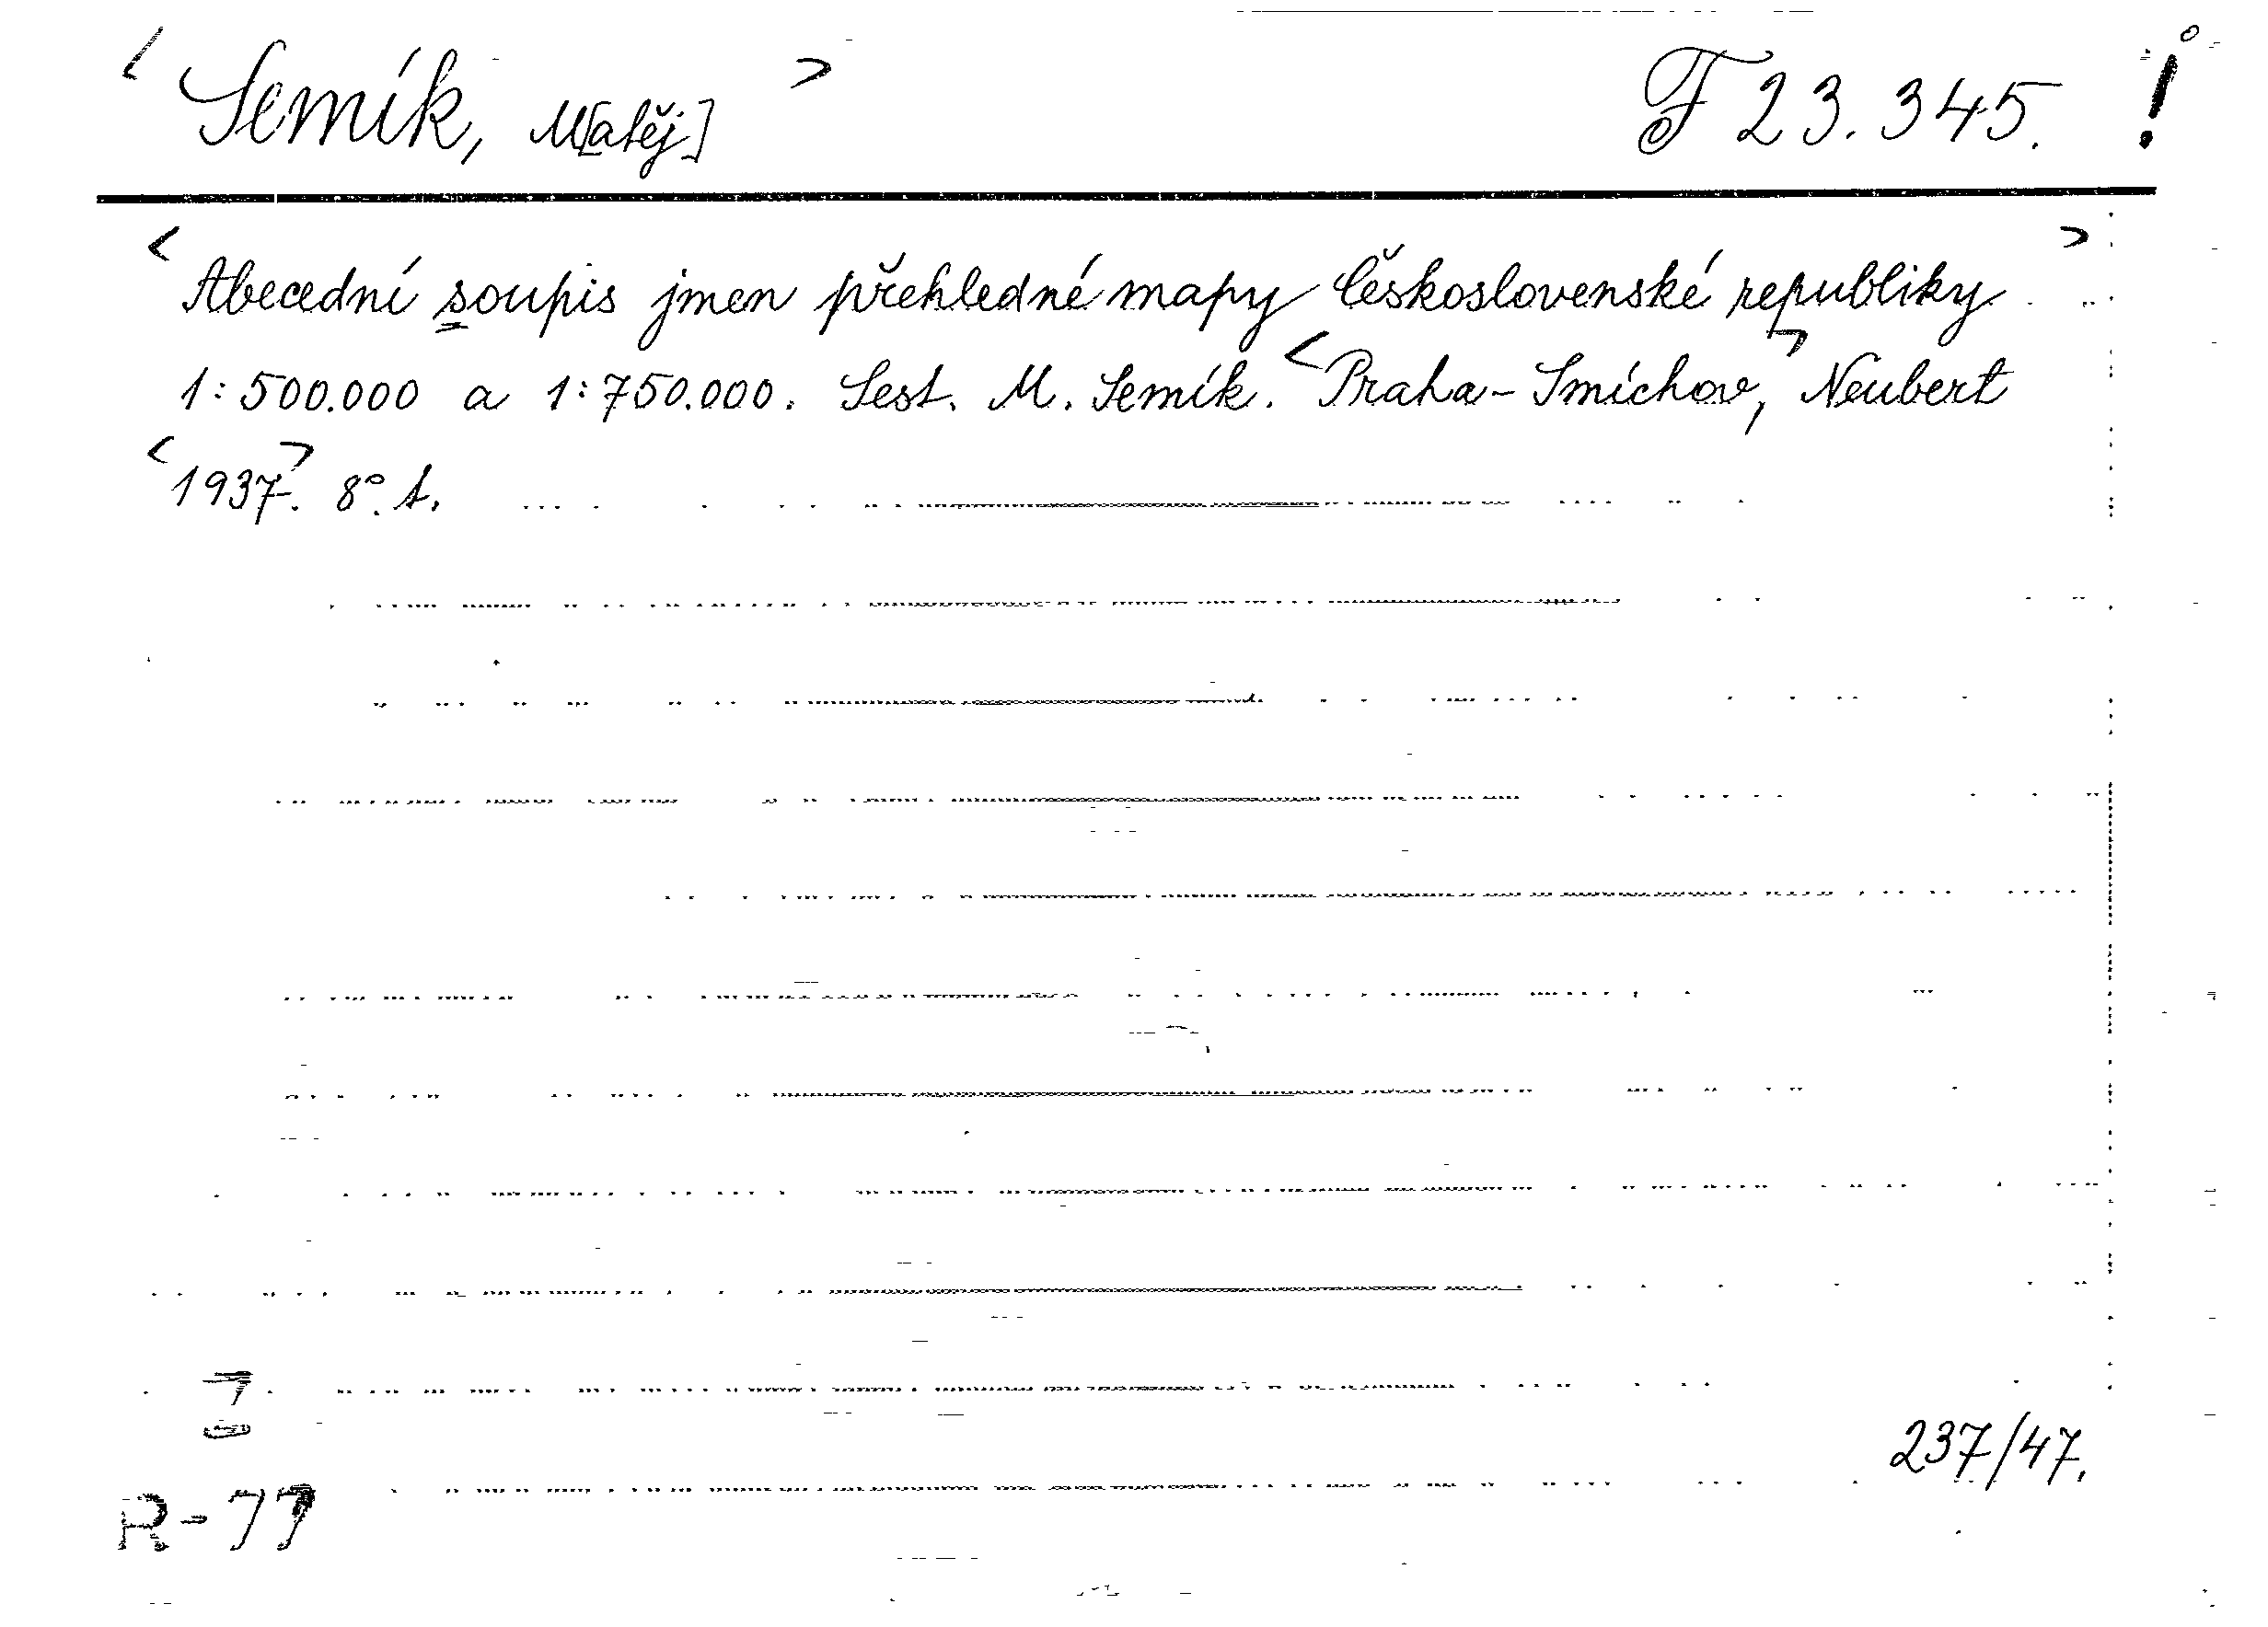 < Semík, M[atěj] > F 23.345. !
< Abecední soupis jmen přehledné mapy Československé republiky >
1:500.000 a 1:750.000. Sest. M. Semík. <Praha-Smíchov, Neubert
<1937>. 8°. t.
237/47.
R-77